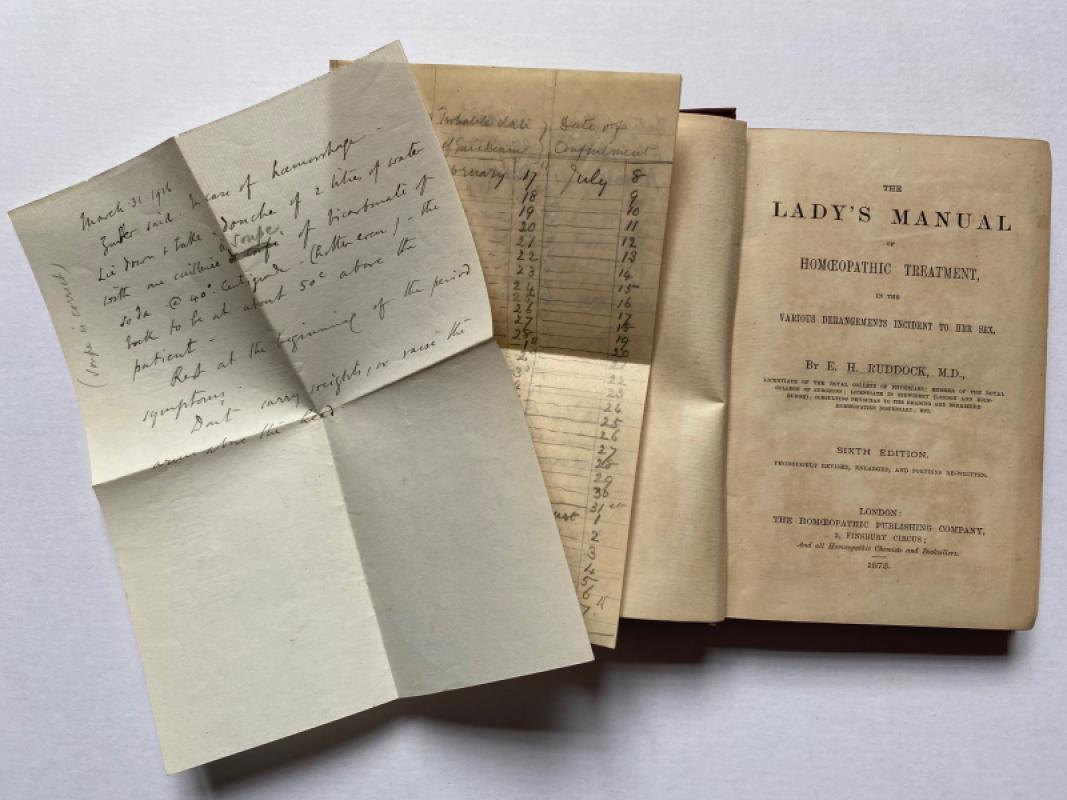 March 31. 1926
said. In case of hæmorrhage -
Lie down & take a douche of 2 litres of water
with one cuillière à soupe of bicarbonate of
soda @ 40° Centigrade - (hotter even) - the
bock to be at about 50c above the
patient -
Rest at the beginning of the period
symptoms
Don't carry weights, or raise the
arms above the head
(soupe is correct)
Probable date Date of
of Quickening Confinement
February 17 July 8
18 9
19 10
20 11
21 12
22 13
23 14
24 15
25 16
26 17
27 18
28 19
1 20
2 21
22
23
24
25
26
27
28
29
30
31st
1
2
3
4
5
6
7
THE
LADY'S MANUAL
OF
HOMŒOPATHIC TREATMENT,
IN THE
VARIOUS DERANGEMENTS INCIDENT TO HER SEX,
BY E. H. RUDDOCK, M.D.,
LICENTIATE OF THE ROYAL COLLEGE OF PHYSICIANS; MEMBER OF THE ROYAL
COLLEGE OF SURGEONS; LICENTIATE IN MIDWIFERY (LONDON AND EDIN-
BURGH); CONSULTING PHYSICIAN TO THE READING AND BERKSHIRE
HOMŒOPATHIC DISPENSARY; ETC.
SIXTH EDITION,
THOROUGHLY REVISED, ENLARGED, AND PORTIONS RE-WRITTEN.
LONDON:
THE HOMŒOPATHIC PUBLISHING COMPANY,
2, FINSBURY CIRCUS;
And all Homœopathic Chemists and Booksellers.
1873.